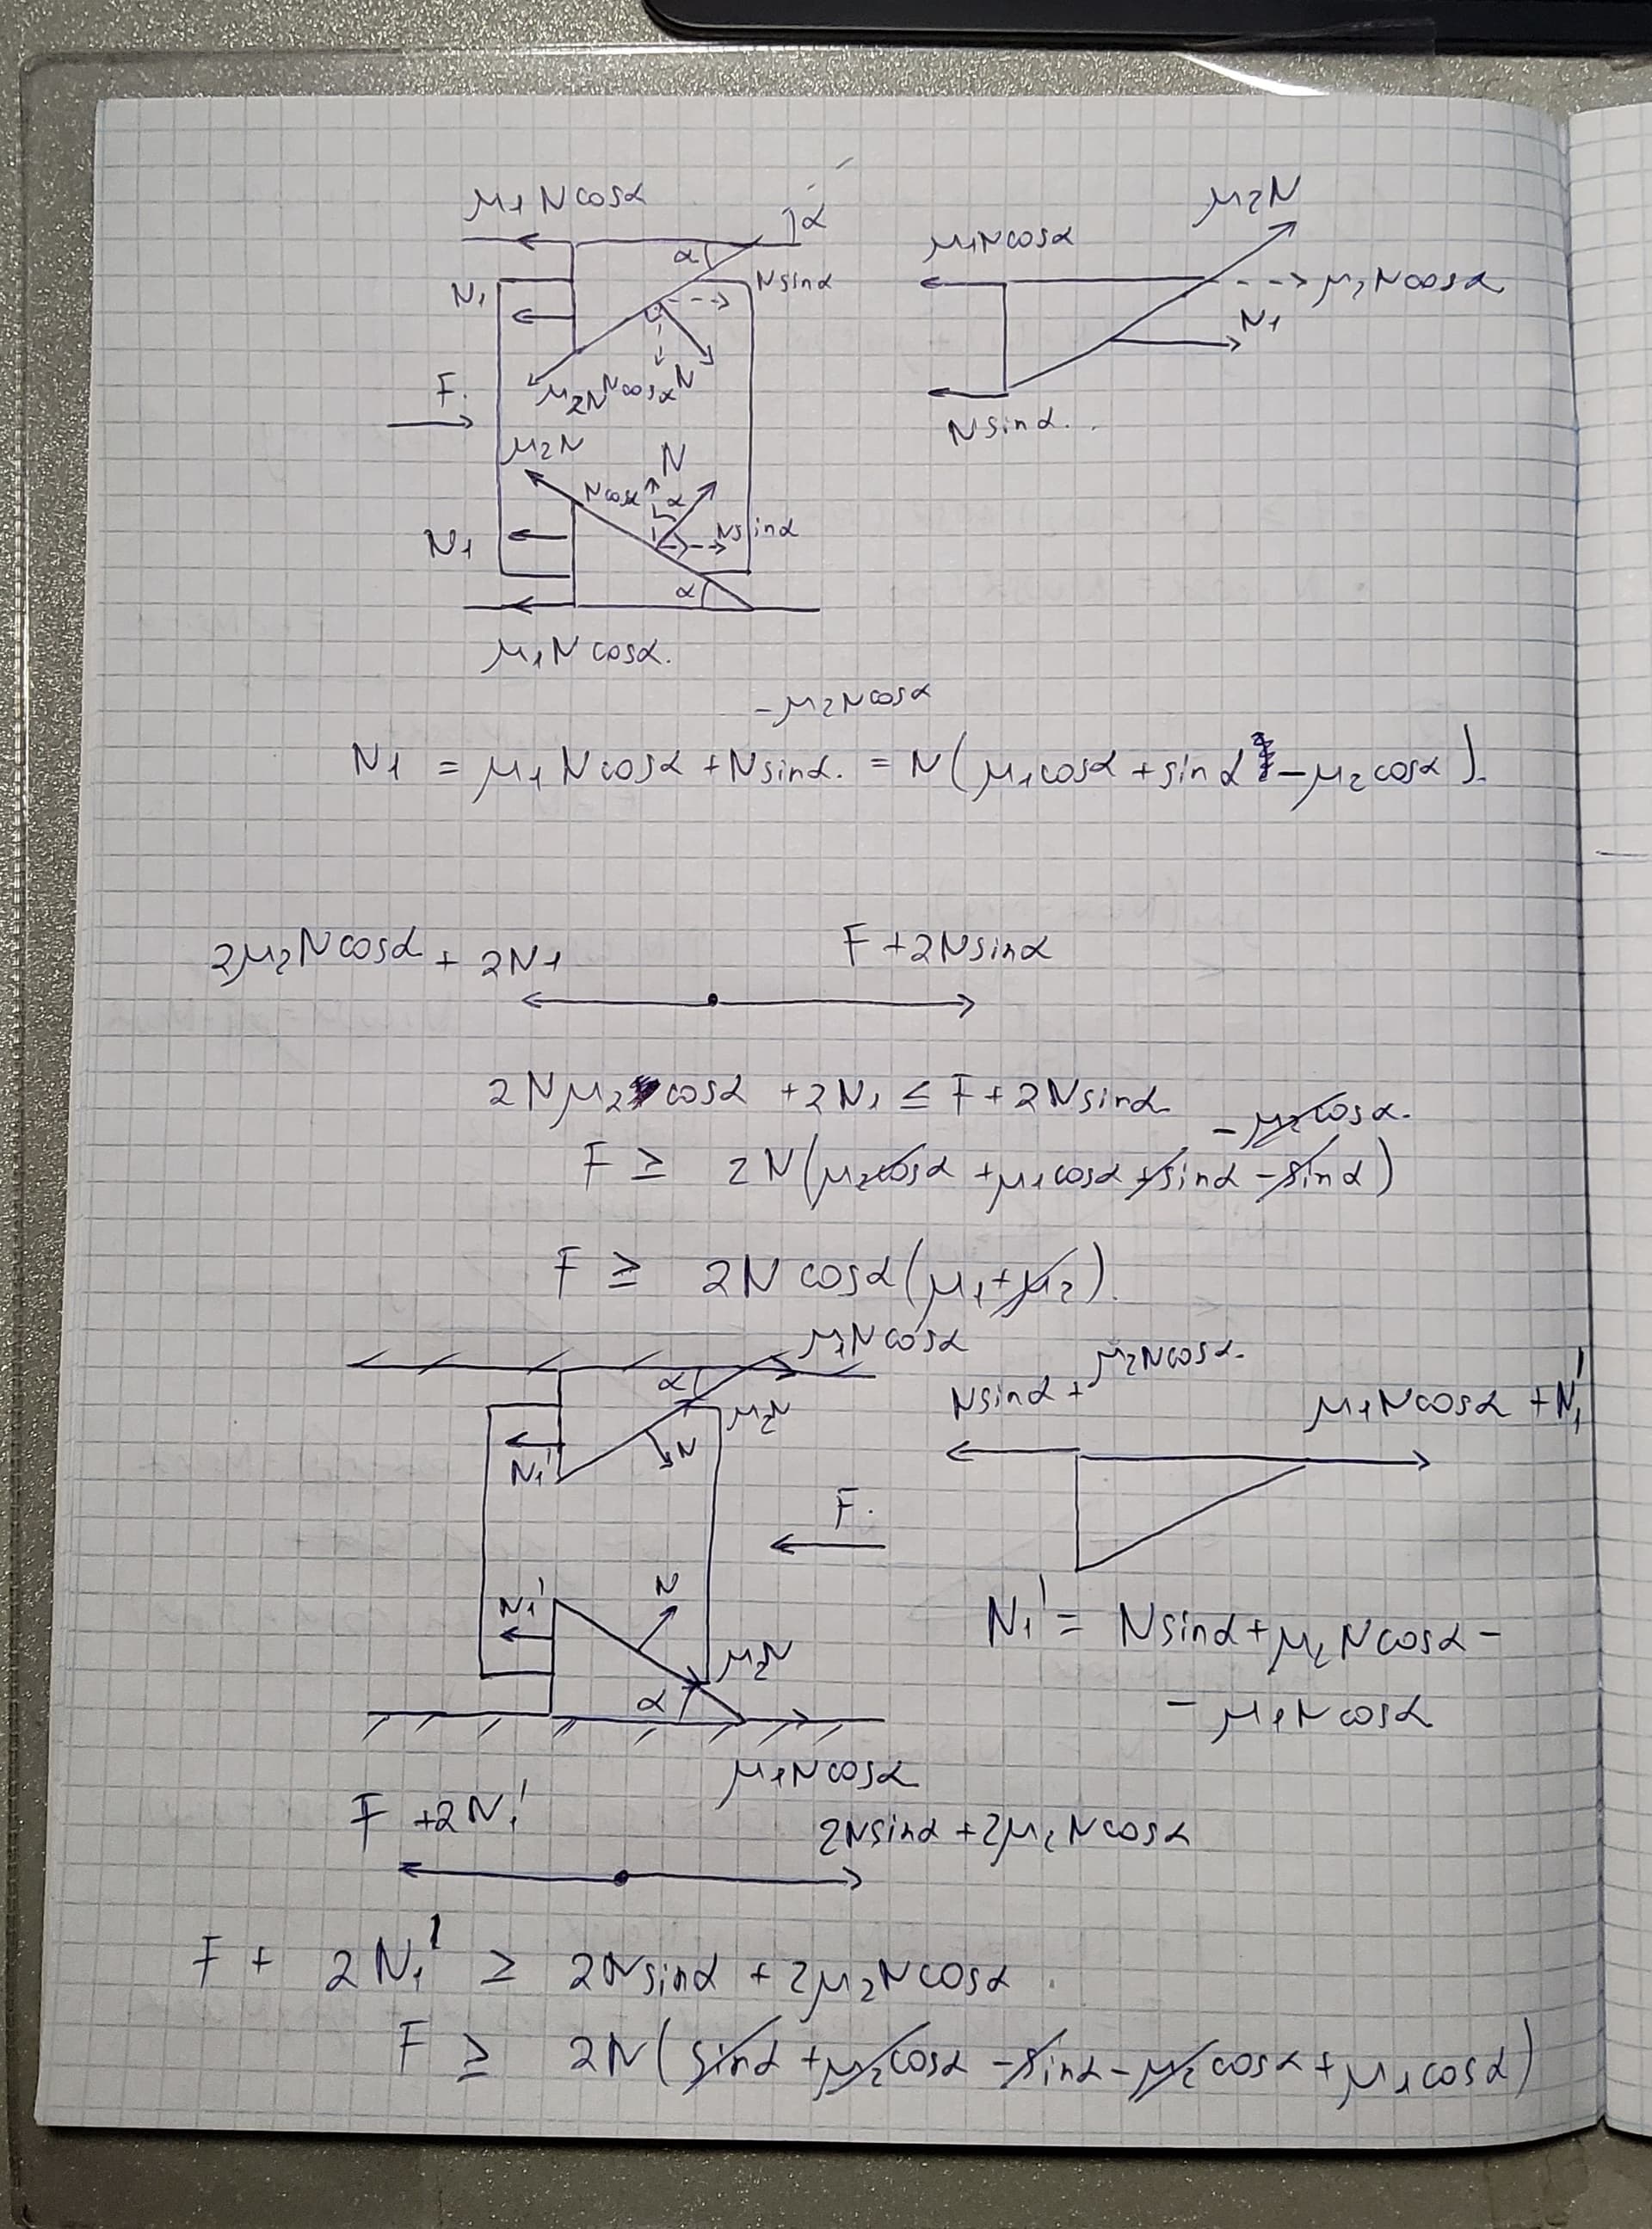 μ1 N cosα
α
α
N1
N sinα
μ2N
N cosα
N
F
μ2N
N
N cosα
α
N1
N sinα
α
μ1 N cosα.
μ2N
μ1Ncosα
μ2 N cosα
N1
N sinα.
- μ2Ncosα
N1 = μ1 N cosα + N sinα. = N(μ1cosα + sinα - μ2 cosα).
2μ2 N cosα + 2N1
F + 2N sinα
2Nμ2 cosα + 2N1 ≤ F + 2N sinα
- μ2 cosα.
F ≥ 2N(μ2cosα + μ1cosα + sinα - sinα)
F ≥ 2N cosα(μ1 + μ2).
μ1N cosα
α
μ2N
N
N1'
F.
N1'
N
μ2N
α
μ1N cosα
N sinα + μ2N cosα.
μ1N cosα + N1'
N1' = N sinα + μ2 N cosα -
- μ1N cosα
F + 2N1'
2N sinα + 2μ2 N cosα
F + 2N1' ≥ 2N sinα + 2μ2N cosα.
F ≥ 2N(sinα + μ2cosα - sinα - μ2 cosα + μ1cosα)